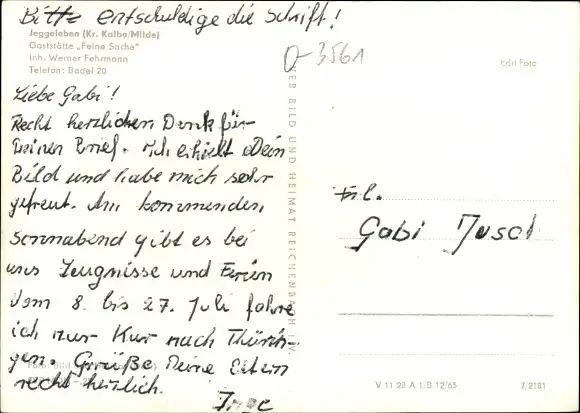 Bitte entschuldige die Schrift!
Jeggeleben (Kr. Kalbe/Milde)
Gaststätte „Feine Sache"
Inh. Werner Fehrmann
Telefon: Badel 20
D-3561
bárl Foto
Liebe Gabi!
Recht herzlichen Dank für
Deinen Brief. Ich erhielt Dein
Bild und habe mich sehr
gefreut. Am kommenden
Sonnabend gibt es bei
uns Zeugnisse und Ferien
Vom 8. bis 27. Juli fahre
ich zur Kur nach Thürin-
gen. Grüße Deine Eltern
recht herzlich.
Inge
BILD UND HEIMAT REICHENBACH
Frl.
Gabi
V 11 28 A 1/B 12/65
7/2181